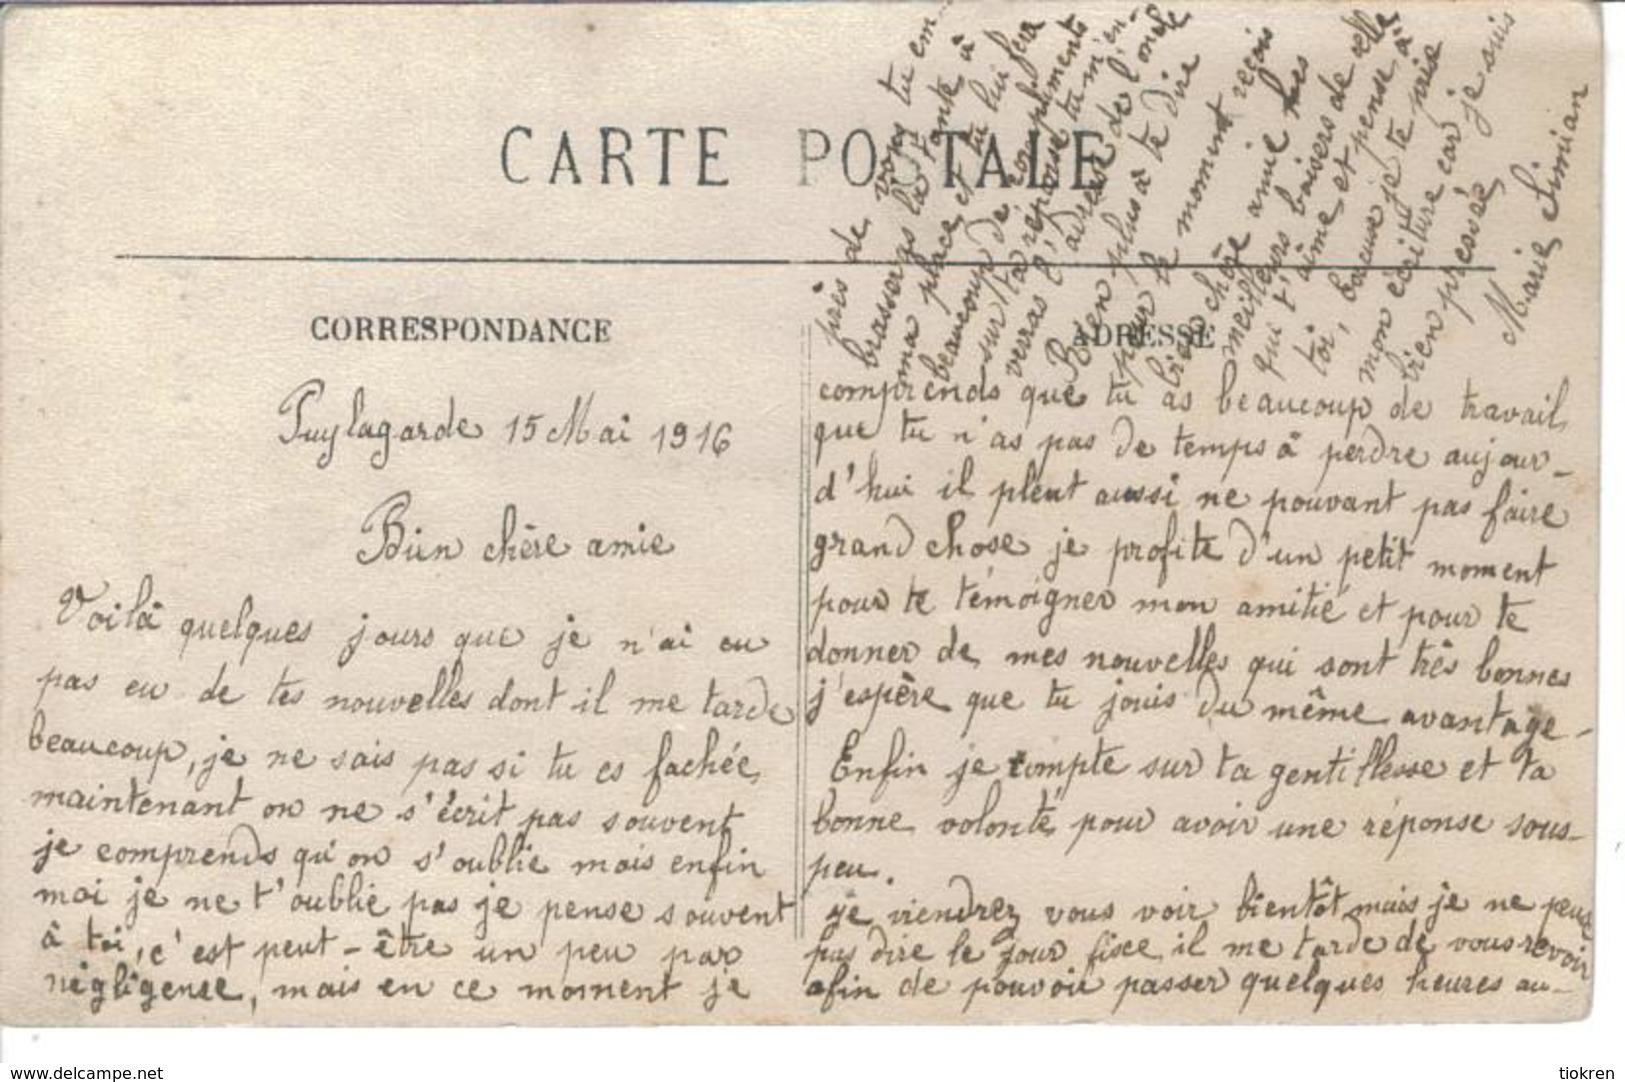 CARTE POSTALE
CORRESPONDANCE
ADRESSE
Puylagarde 15 Mai 1916
Bien chère amie
Voilà quelques jours que je n'ai eu
pas eu de tes nouvelles dont il me tarde
beaucoup, je ne sais pas si tu es fachée,
maintenant on ne s'écrit pas souvent
je comprends qu'on s'oublie mais enfin
moi je ne t'oublie pas je pense souvent
à toi, c'est peut-être un peu par
négligense, mais en ce moment je
comprends que tu as beaucoup de travail
que tu n'as pas de temps à perdre aujour-
d'hui il pleut aussi ne pouvant pas faire
grand chose je profite d'un petit moment
pour te témoigner mon amitié et pour te
donner de mes nouvelles qui sont très bonnes
j'espère que tu jouis du même avantage-
Enfin je compte sur ta gentillesse et ta
bonne volonté pour avoir une réponse sous-
peu.
je viendrez vous voir bientôt mais je ne peus
pas dire le jour fisce il me tarde de vous revoir
afin de pouvoir passer quelques heures au-
près de vous tu em-
brasseras la tante à
ma place et tu lui fera
beaucoup de compliments
sur ta réponse tu m'en-
verras l'adresse de l'oncle
Rien plus à te dire
pour le moment reçois
bien chère amie les
meilleurs baisers de celle
qui t'aime et pense à
toi, je te prie
mon écriture car je suis
bien pressée
Marie Simian
www.delcampe.net
tiokren